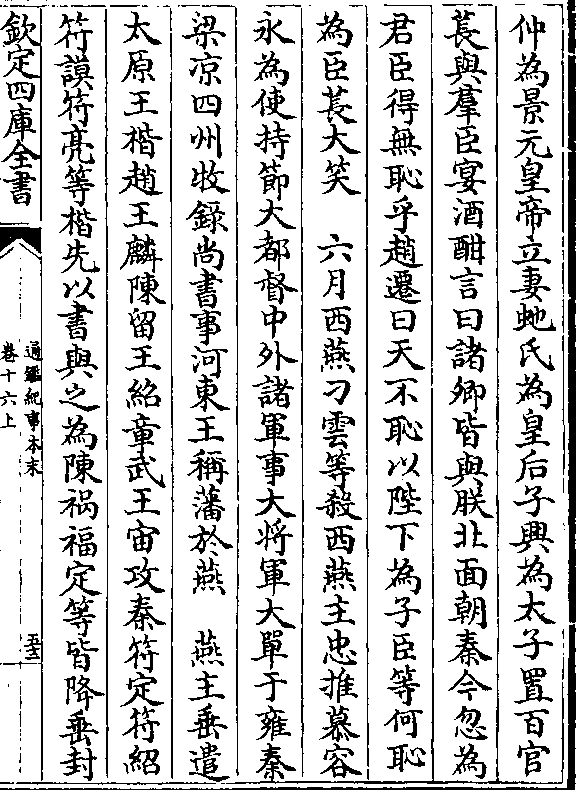 仲為景元皇帝立妻虵氏為皇后子興為太子置百官
萇與羣臣宴酒酣言曰諸卿皆與朕北面朝秦今忽為
君臣得無恥乎趙遷曰天不恥以陛下為子臣等何恥
為臣萇大笑　六月西燕刁雲等殺西燕主忠推慕容
永為使持節大都督中外諸軍事大將軍大單于雍秦
梁凉四州牧錄尚書事河東王稱藩於燕　燕主垂遣
太原王楷趙王麟陳留王紹章武王宙攻秦苻定苻紹
苻謨苻亮等楷先以書與之為陳禍福定等皆降垂封
欽定四庫全書
通鑑紀事本末
卷十六上